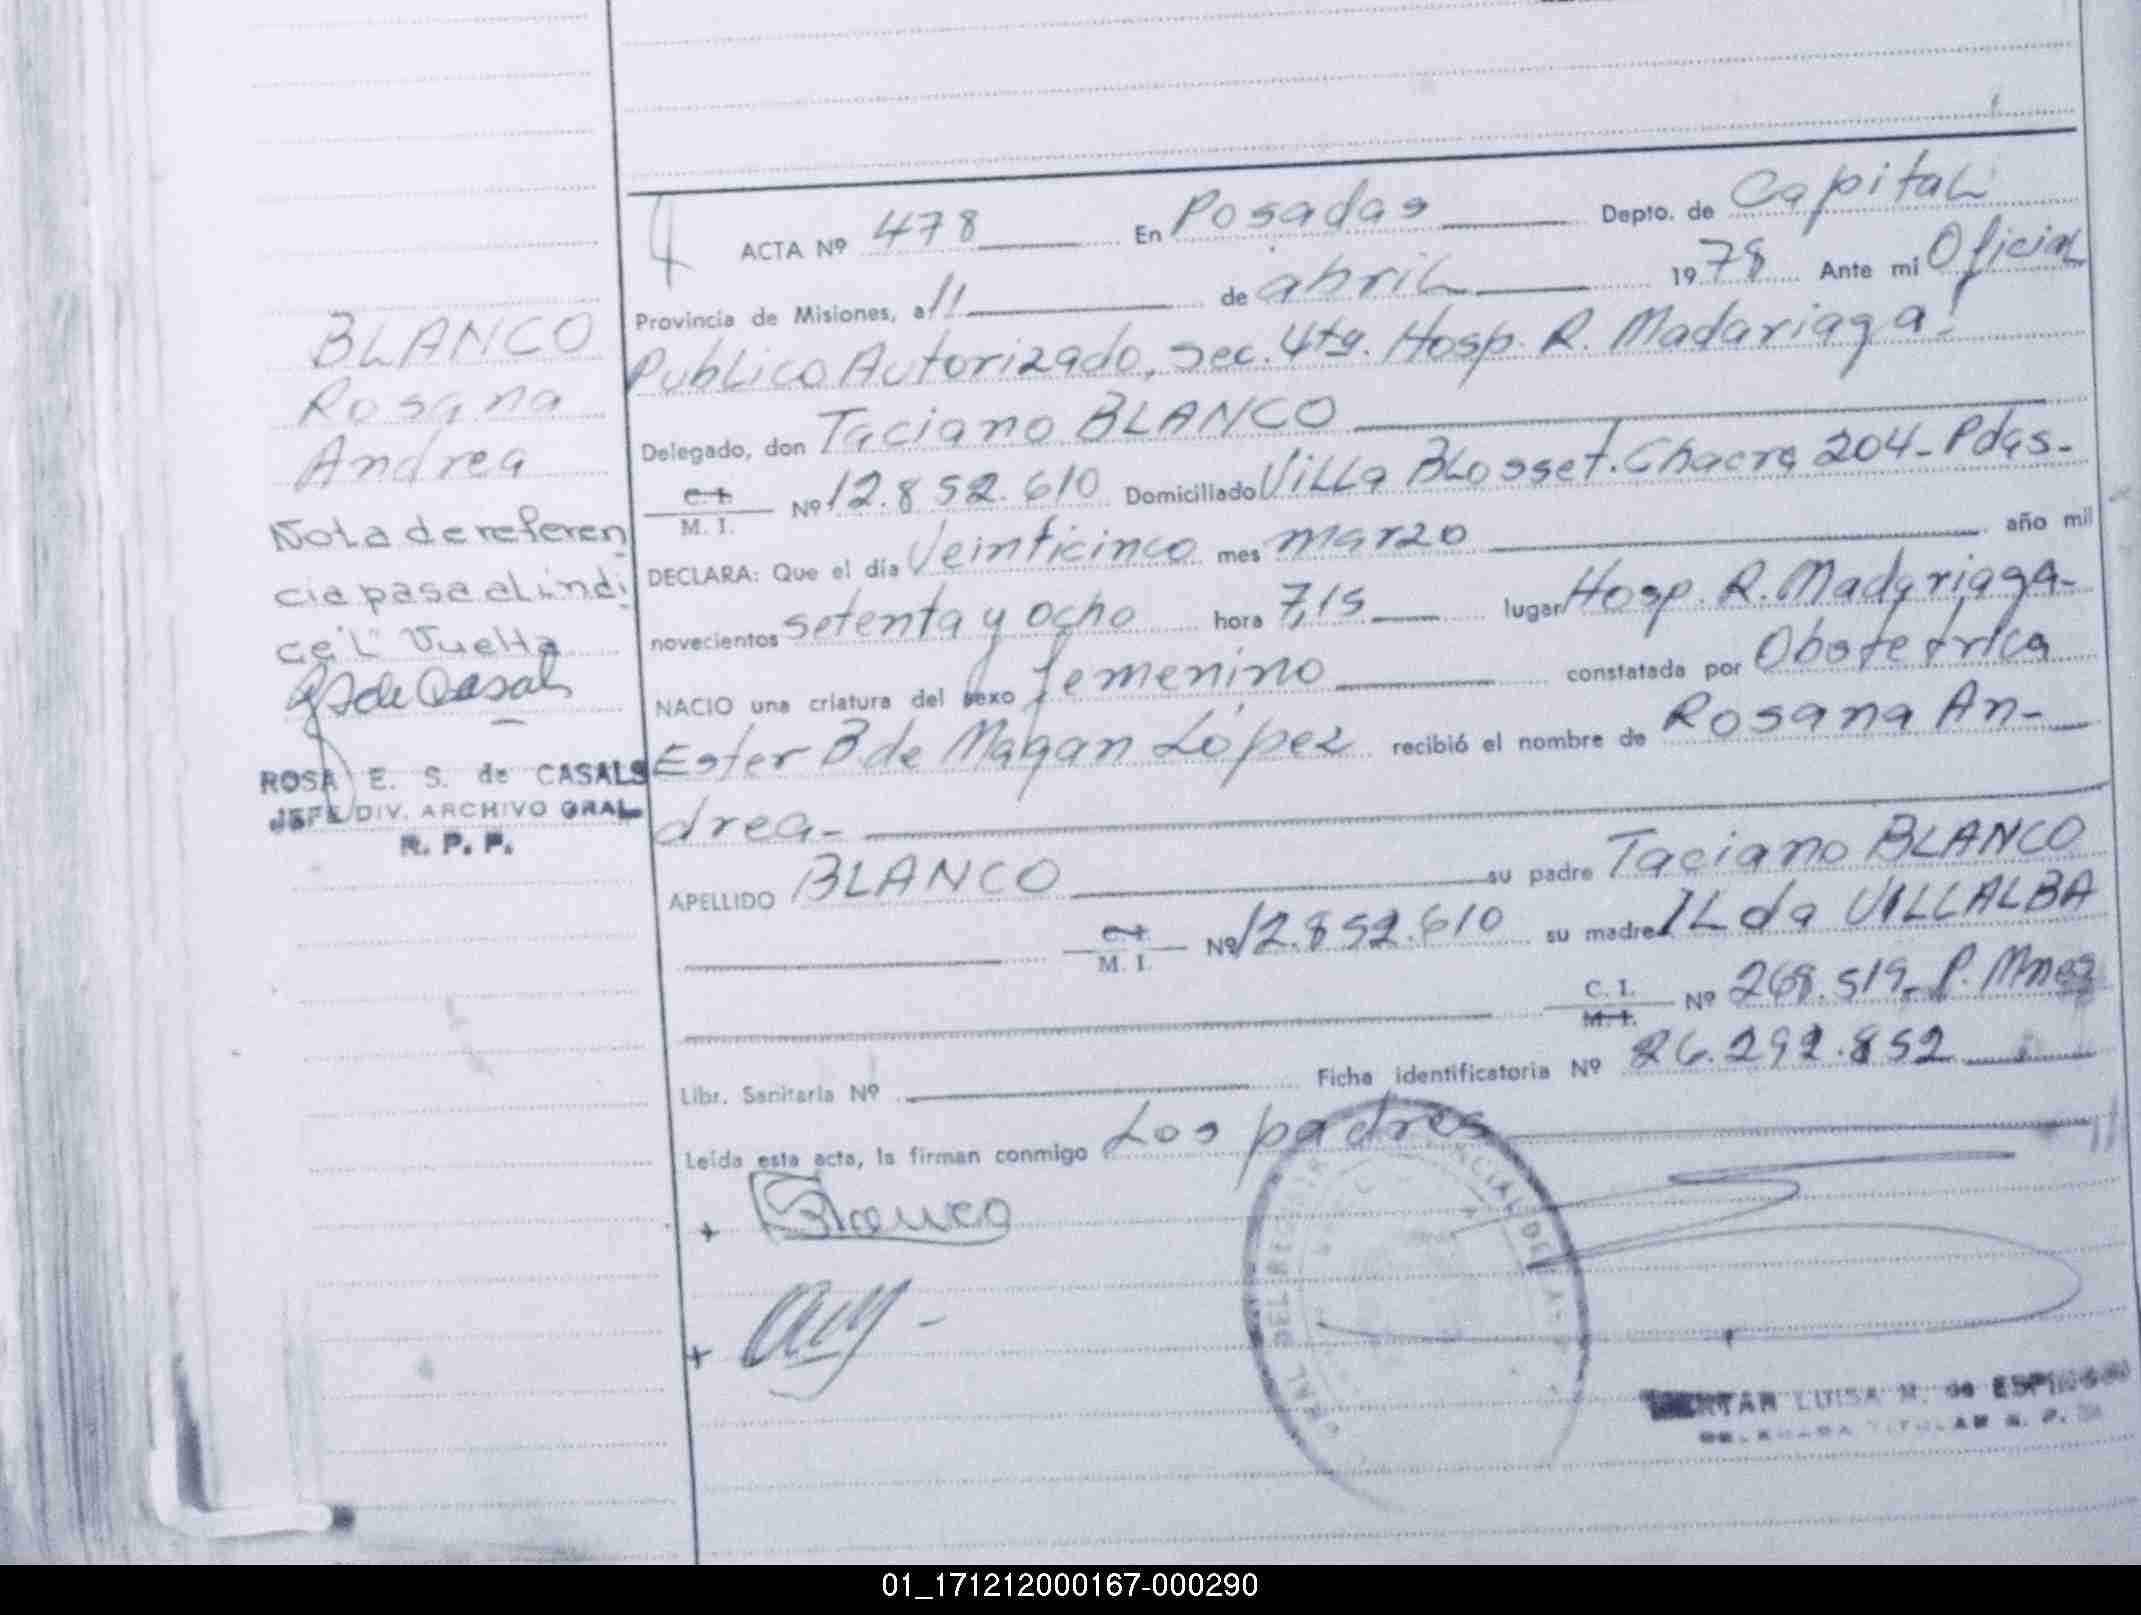 ACTA Nº 478 En Posadas Depto. de Capital
Provincia de Misiones, a 11 de abril 1978 Ante mi Oficial
Publico Autorizado, Sec. 4ta. Hosp. R. Madariaga
Delegado, don Taciano BLANCO
C.I. M. I. Nº 12.852.610 Domiciliado Villa Blosset. Chacra 204- Pdas-
DECLARA: Que el día Veinticinco mes marzo año mil
novecientos setenta y ocho hora 7,15 lugar Hosp. R. Madariaga-
NACIO una criatura del sexo femenino constatada por Obstetrica
Ester B de Magan López recibió el nombre de Rosana An-
drea-
APELLIDO BLANCO su padre Taciano BLANCO
C.I. M. I. Nº 12.852.610 su madre ILda VILLALBA
C. I. M. I. Nº 268.519- P. Mnes
Libr. Sanitaria Nº Ficha identificatoria Nº 26.292.852
Leída esta acta, la firman conmigo Los padres
+ Blanco
+
LUISA M. de
BLANCO
Rosana
Andrea
Nota de referen
cia pasa al indi
ce "L" Vuelta
de Casals
ROSA E. S. de CASALS
JEFE DIV. ARCHIVO GRAL
R. P. P.
01_171212000167-000290